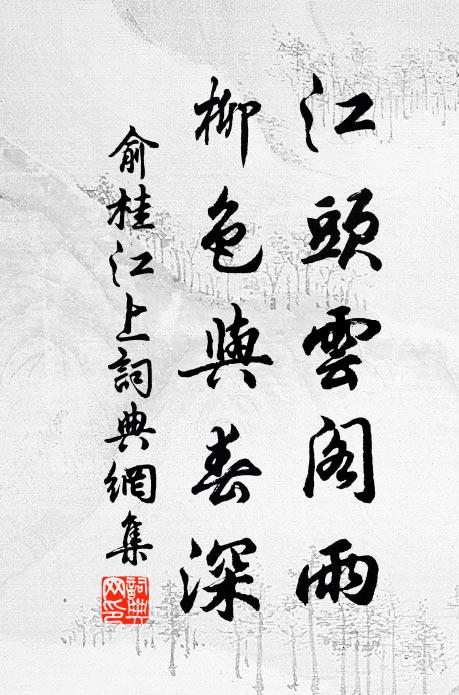 江頭雲閣雨
柳色與春深
俞桂江上詞典網集
詞典網印